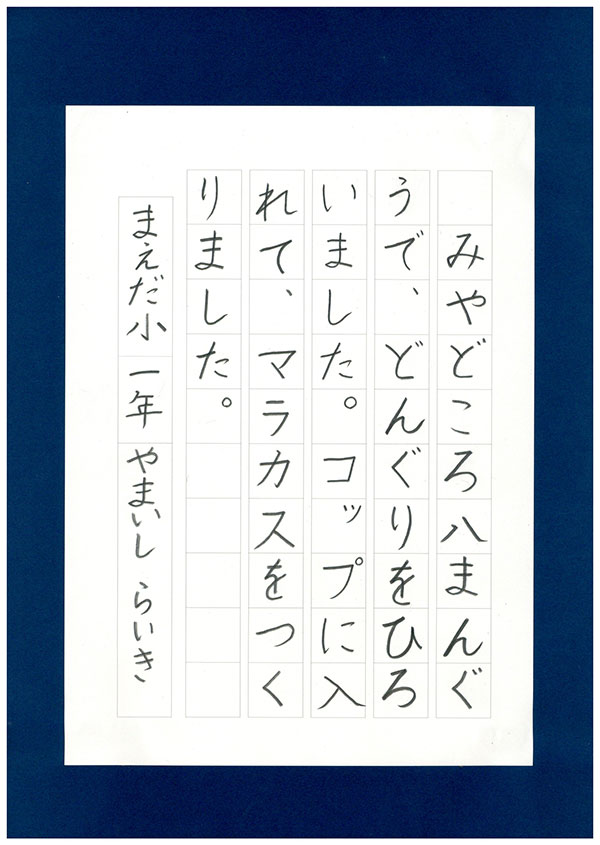 みやどころ八まんぐ
うで、どんぐりをひろ
いました。コップに入
れて、マラカスをつく
りました。
まえだ小 一年 やまいし らいき